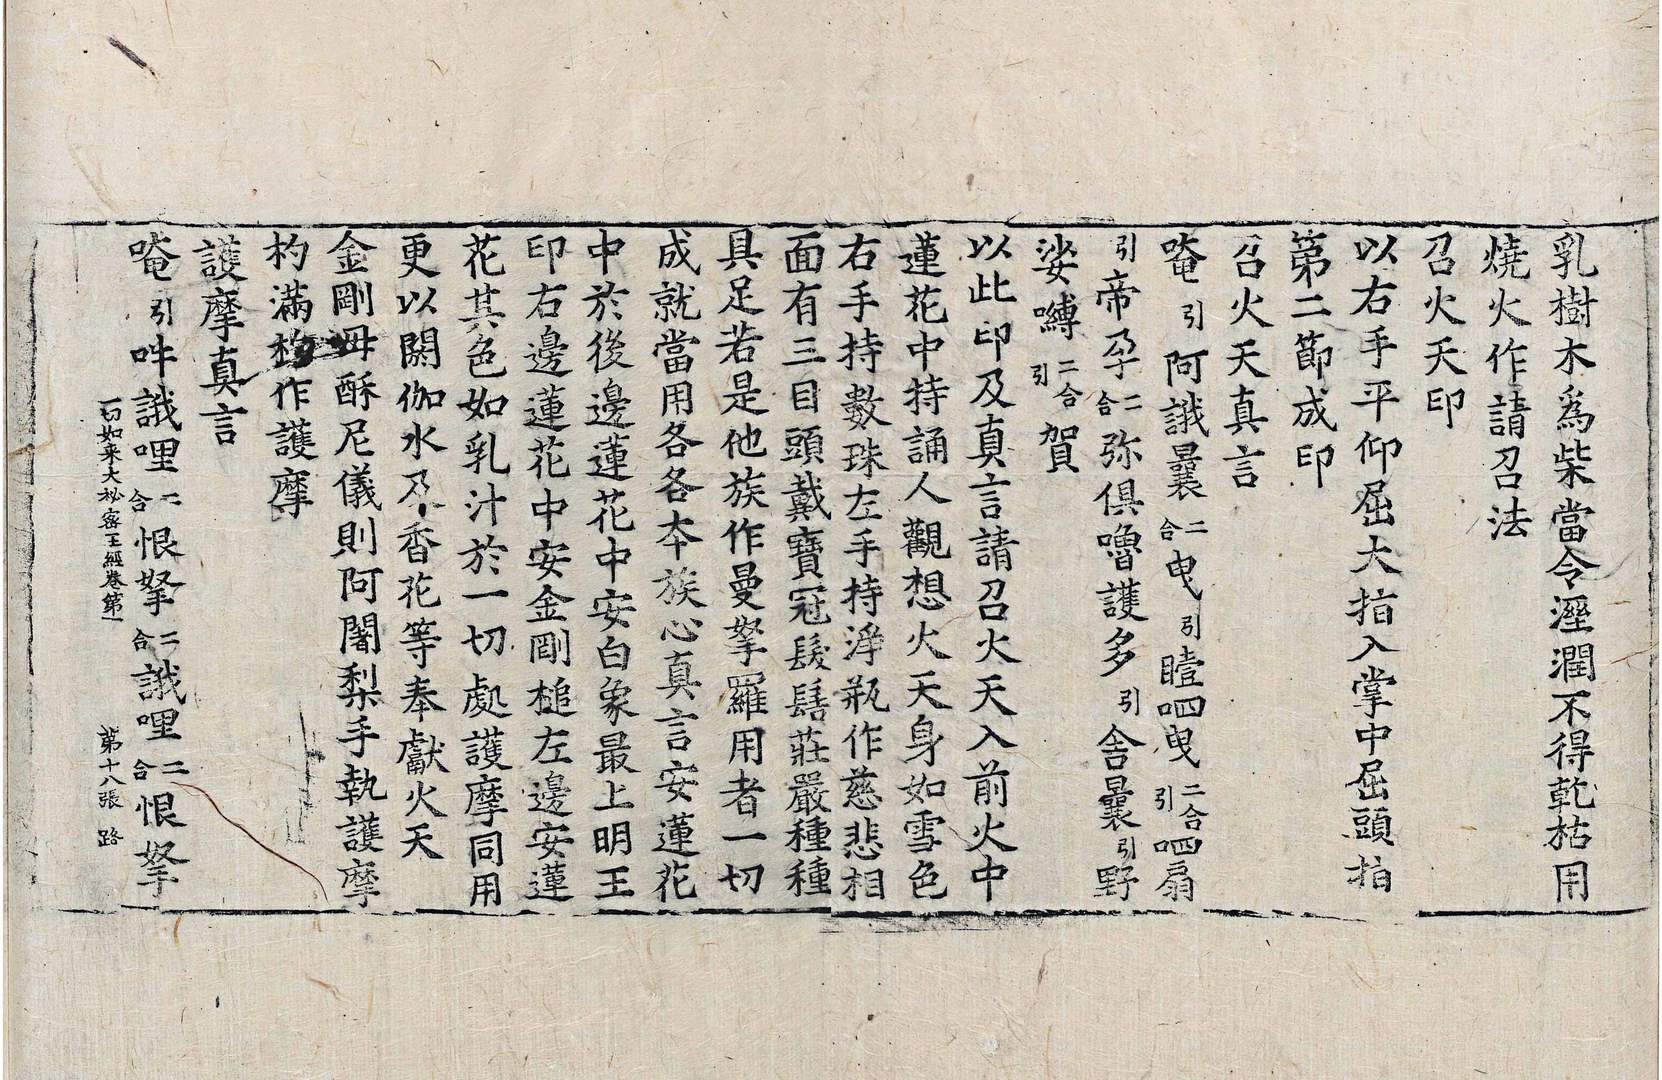 乳樹木爲柴當令溼潤不得乾枯用
燒火作請召法
召火天印
以右手平仰屈大拍入掌中屈頭拍
第二節成印
召火天真言
唵引阿誐曩二合曳引曀呬曳二合引呬扇
引帝孕二合弥俱嚕護多引舎曩引野
娑嚩二合引賀
以此印及真言請召火天入前火中
蓮花中持誦人觀想火天身如雪色
右手持數珠左手持淨瓶作慈悲相
面有三目頭戴寶冠髮髻莊嚴種種
具足若是他族作曼拏羅用者一切
成就當用各各本族心真言安蓮花
中於後邊蓮花中安白象最上明王
印右邊蓮花中安金剛槌左邊安蓮
花其色如乳汁於一切處護摩同用
更以閼伽水及香花等奉獻火天
金剛毋酥尼儀則阿闍梨手執護摩
杓滿杓作護摩
護摩真言
唵引吽誐哩二合恨拏二合誐哩二合恨拏
一切如来大祕密王經卷第一 第十八張 路